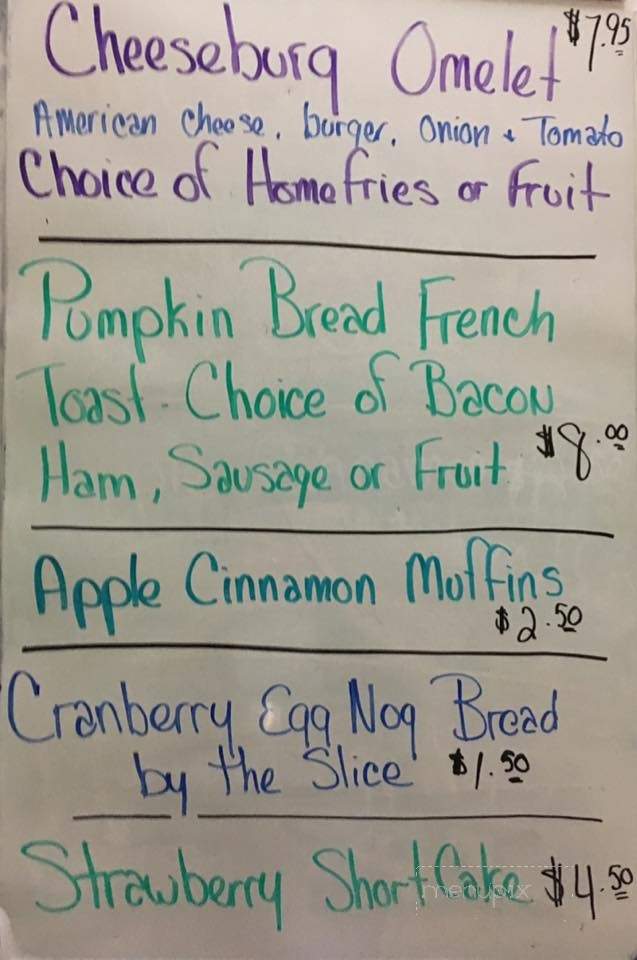 Cheeseburg Omelet $7.95
American cheese, burger, onion + Tomato
Choice of Homefries or Fruit
Pumpkin Bread French
Toast - Choice of Bacon
Ham, Sausage or Fruit $8.00
Apple Cinnamon Muffins
$2.50
Cranberry Egg Nog Bread
by the Slice $1.50
Strawberry ShortCake $4.50
menupix